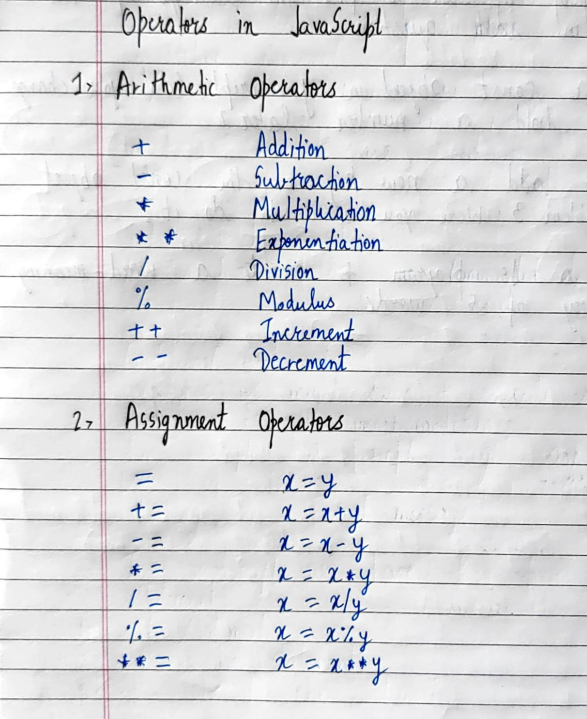 Operators in JavaScript
1, Arithmetic Operators
+ Addition
- Subtraction
* Multiplication
* * Exponentiation
/ Division
% Modulus
++ Increment
-- Decrement
2, Assignment Operators
= x=y
+= x=x+y
-= x=x-y
*= x = x*y
/= x = x/y
%= x = x%y
**= x = x**y